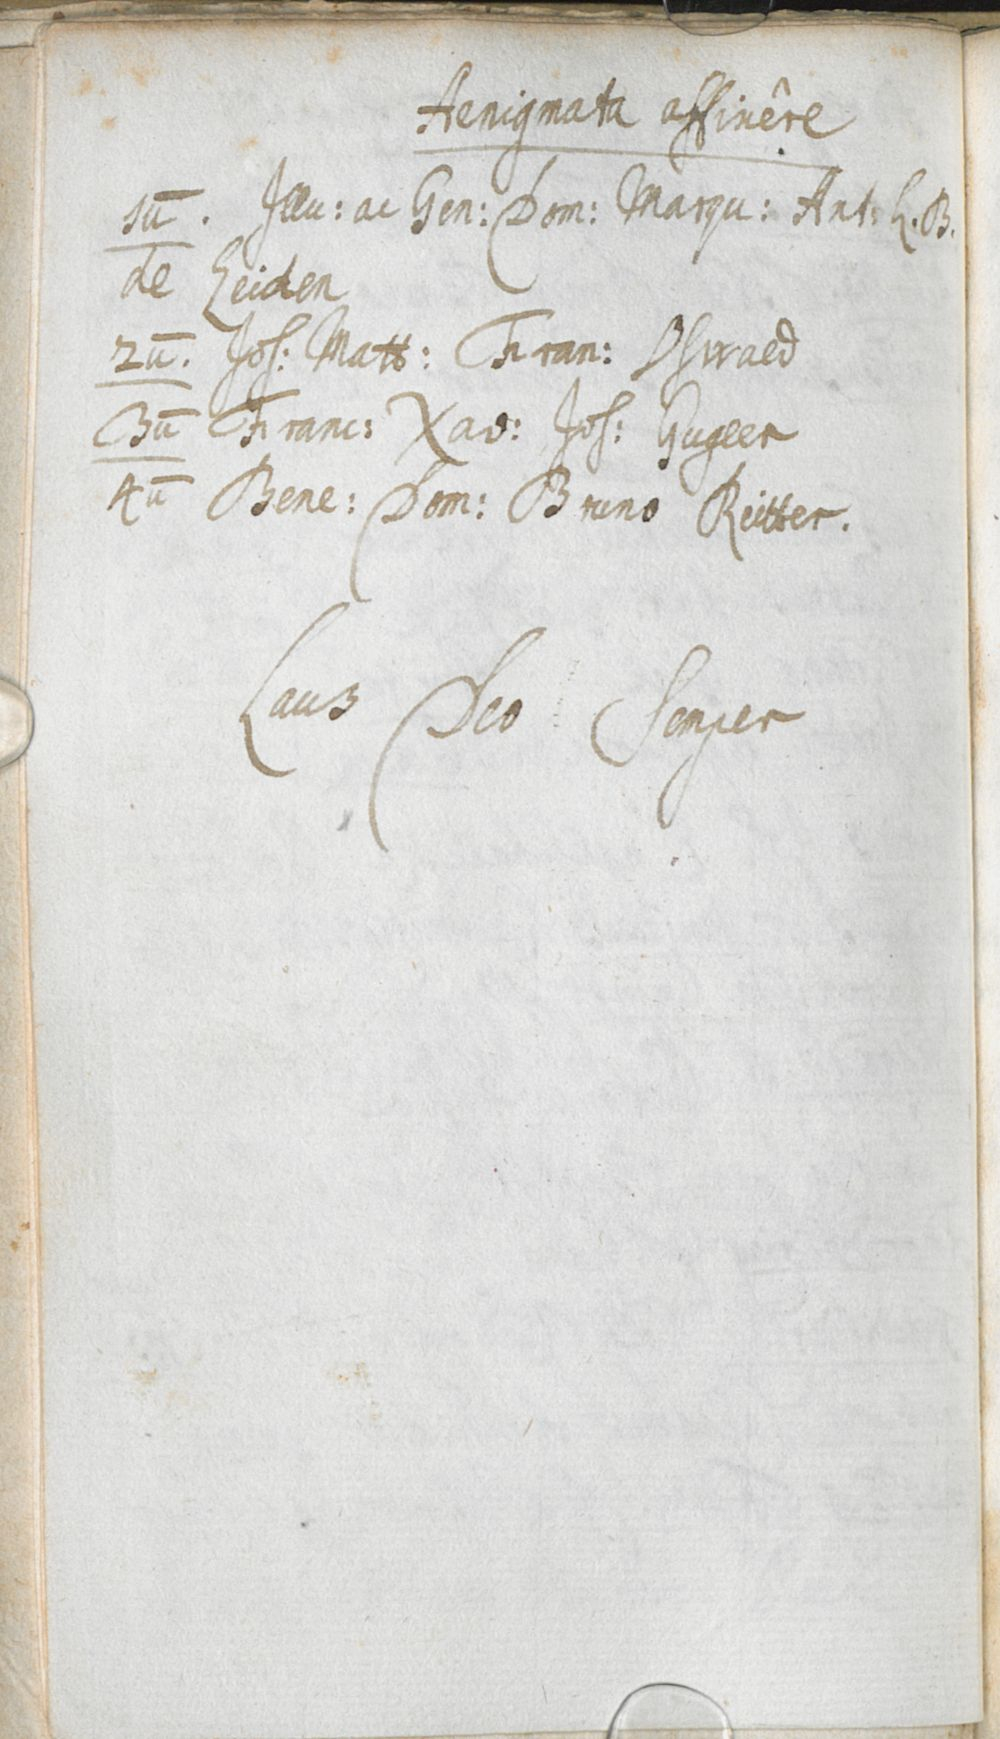 Aenigmata affixêre
1ū. Illu: ac Gen: Dom: Marqu: Ant: L. B.
de Leiden
2ū. Jos: Matt: Fran: Oswald
3ū Franc: Xav: Jos: Gugler
4ū Bene: Dom: Bruno Reitter.
Laus Deo Semper